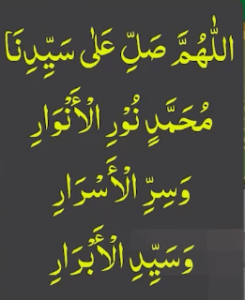 اللّٰهُمَّ صَلِّ عَلٰى سَيِّدِنَا
مُحَمَّدٍ نُوْرِ الْأَنْوَارِ
وَسِرِّ الْأَسْرَارِ
وَسَيِّدِ الْأَبْرَارِ